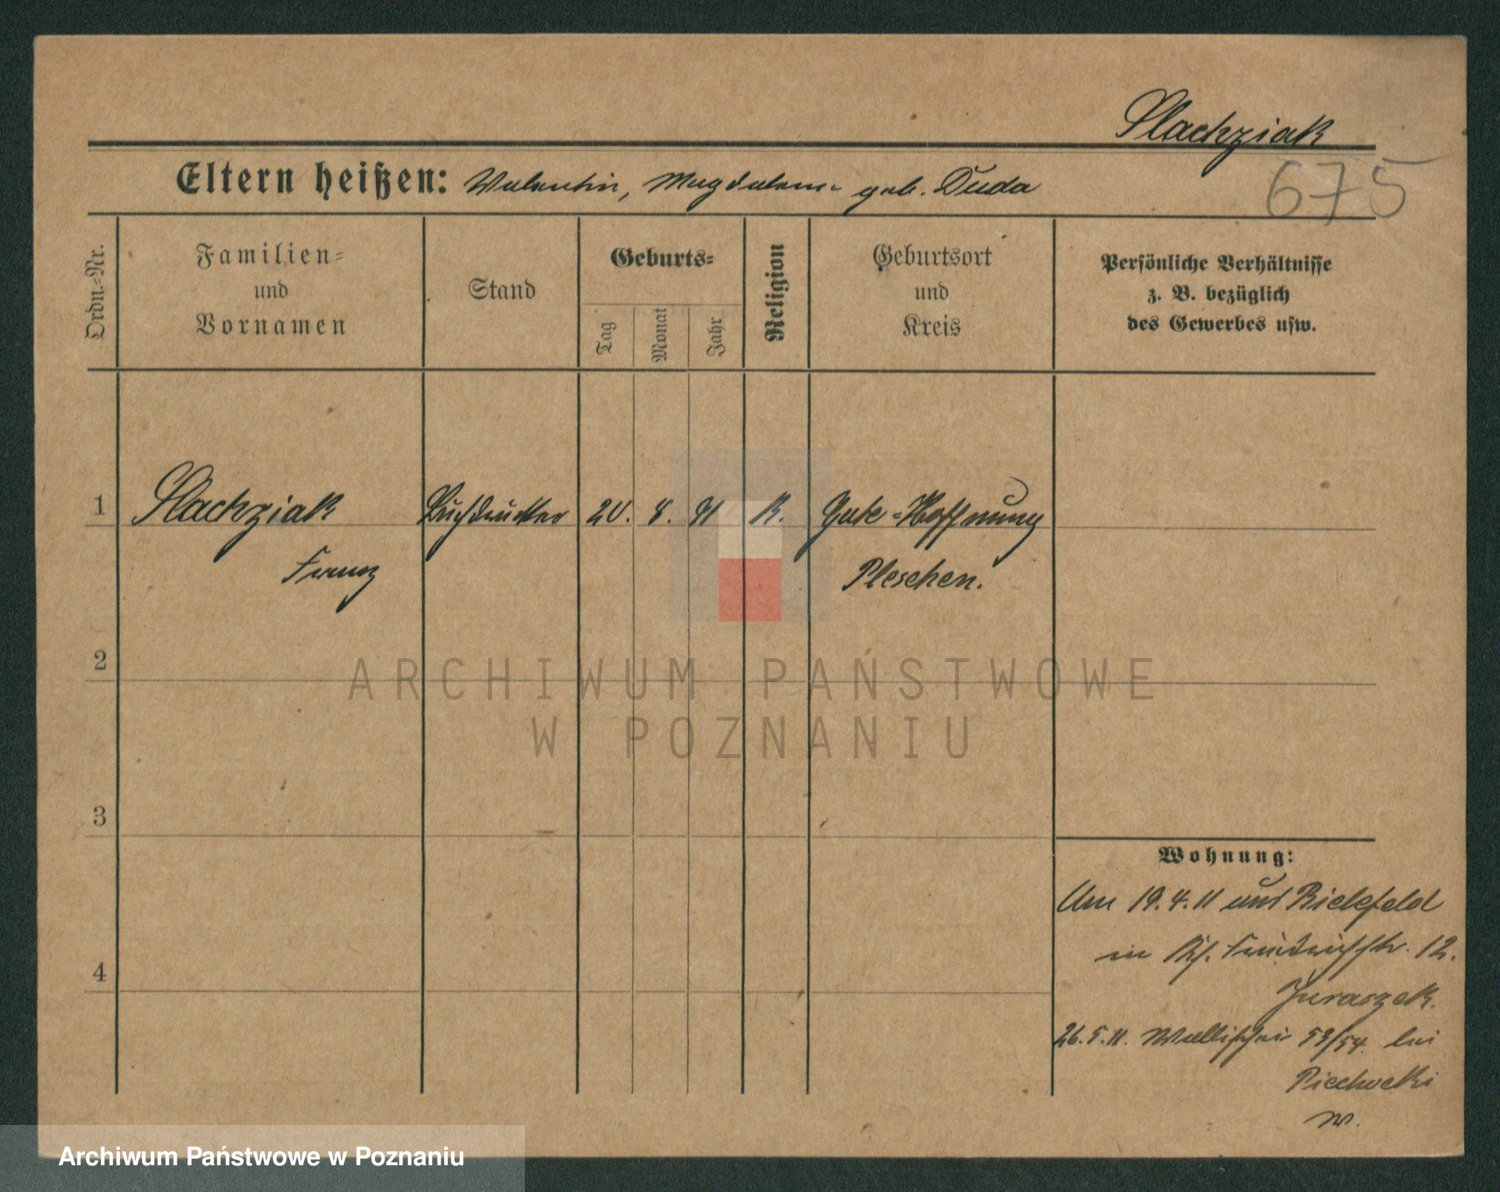 Slachziak
675
Eltern heißen: Valentin, Magdalena geb. Duda
Ordn.-Nr.
Familien-
und
Vornamen
Stand
Geburts-
Tag
Monat
Jahr
Religion
Geburtsort
und
Kreis
Persönliche Verhältnisse
z. B. bezüglich
des Gewerbes usw.
1 Slachziak Buchdrucker 20. 8. 91 K. Gute-Hoffnung
Franz Pleschen.
2
ARCHIWUM PAŃSTWOWE
W POZNANIU
3
Wohnung:
Am 19.4.11 aus Bielefeld
4
in Friedrichstr. 12.
Juraszek.
26.5.11. Wallischei 53/54. bei
Piechocki
Archiwum Państwowe w Poznaniu